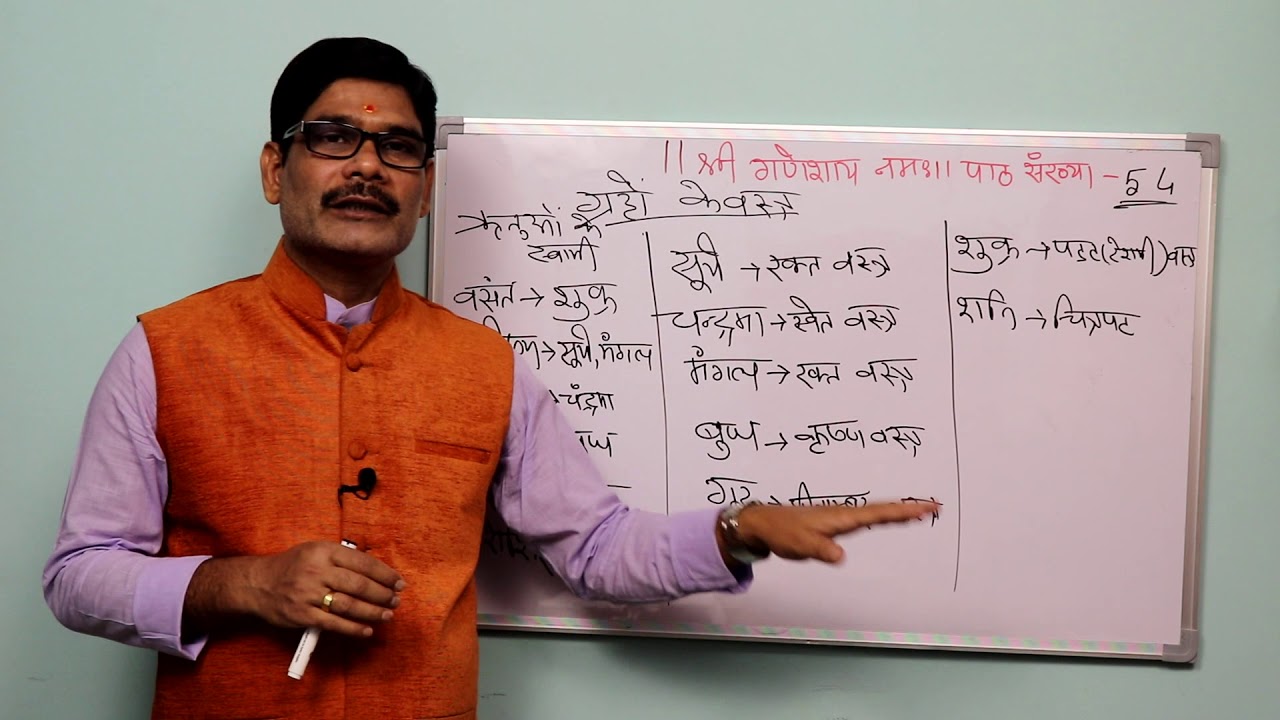 ॥ श्री गणेशाय नमः॥ पाठ संख्या - 54
ग्रहों के वस्त्र
ऋतुओं के
स्वामी
वसंत → शुक्र
→ सूर्य, मंगल
→ चंद्रमा
सूर्य → रक्त वस्त्र
चन्द्रमा → श्वेत वस्त्र
मंगल → रक्त वस्त्र
बुध → कृष्ण वस्त्र
गुरु →
शुक्र → पट्ट (रेशमी) वस्त्र
शनि → चित्रपट